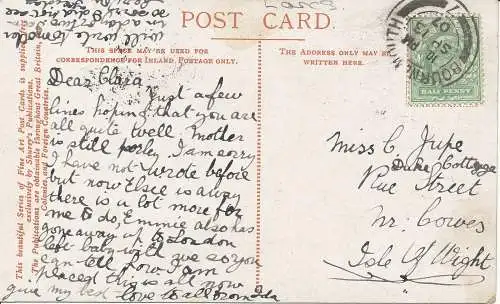 POST CARD.
THIS SPACE MAY BE USED FOR
CORRESPONDENCE FOR INLAND POSTAGE ONLY.
THE ADDRESS ONLY MAY BE
WRITTEN HERE.
BOURNEMOUTH
HALF PENNY
Dear Clara
Just a few
lines hoping that you are
all quite well. Mother
is still I am sorry
I have not wrote before
but now Elsie is away
there is a lot more for
me to do, Emmie also has
gone away up to London
left baby with us so you
can tell how I am
placed this is all now
give my best love to all from Ida
Miss C. Jupe
Duke Cottage
Rue Street
Nr. Cowes
Isle Of Wight
This beautiful Series of Fine Art Post Cards is supplied free
exclusively by Shurey's Publications.
The Publications are obtainable throughout Great Britain,
Colonies and Foreign Countries.
will write